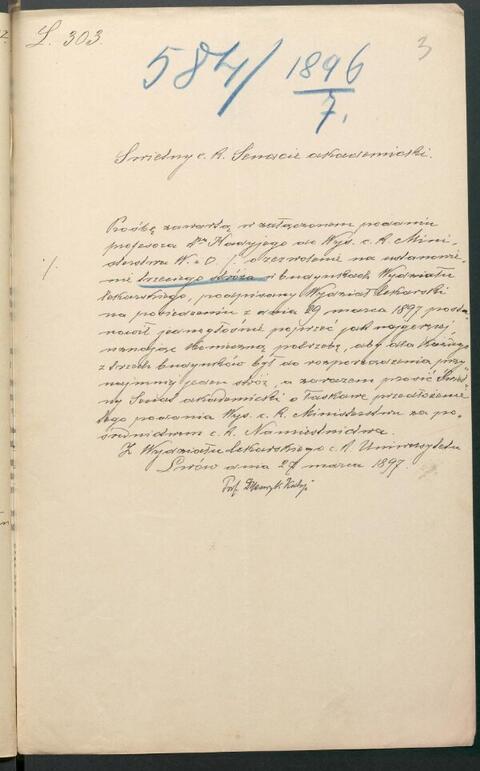 L. 303.
3
584/1896
7.
Świetny c. k. Senacie akademicki.
Prośbę zawartą w załączonem podaniu
profesora Dra Kadyjego do Wys. c. k. Mini-
sterstwa W. i O. /. o zezwolenie na ustanowie-
nie trzeciego stróża w budynkach Wydziału
lekarskiego, podpisany Wydział lekarski
na posiedzeniu z dnia 29 marca 1897 posta-
nowił jednogłośnie poprzeć jak najgoręcej,
uznając konieczną potrzebę, aby dla każdego
z trzech budynków był do rozporządzenia przy-
najmniej jeden stróż, a zarazem prosić Świet-
ny Senat akademicki o łaskawe przedłożenie
tego podania Wys. c. k. Ministerstwu za po-
średnictwem c. k. Namiestnictwa.
Z Wydziału lekarskiego c. k. Uniwersytetu
Lwów dnia 27 marca 1897.
Prof. Dr Henryk Kadyi